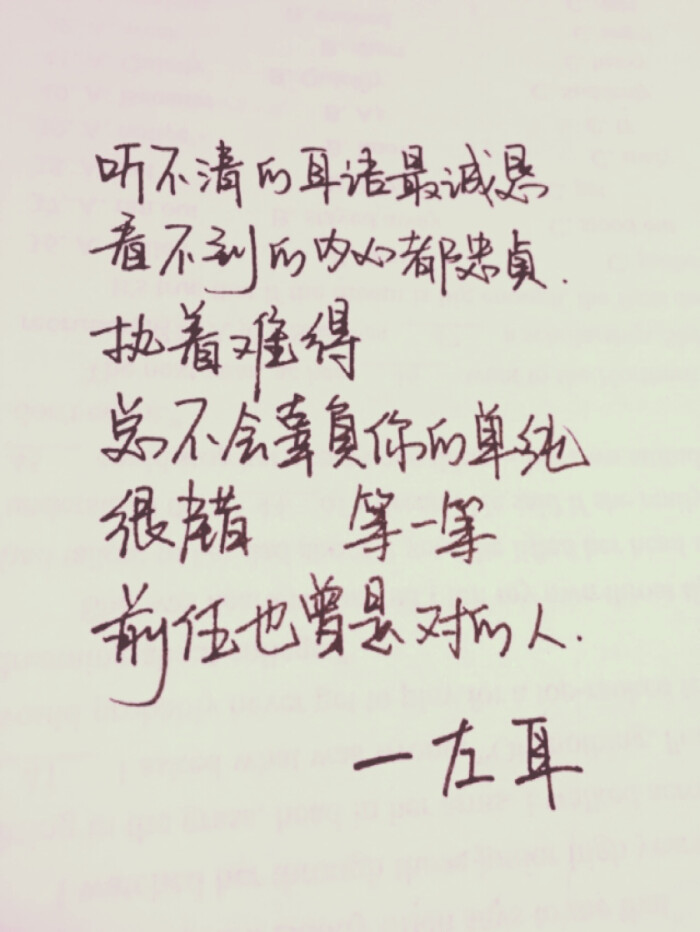 听不清的耳语最诚恳
看不到的内心都忠貞.
执着难得
总不会辜負你的单纯
很 错 等一等
前任也曾是对的人.
一左耳